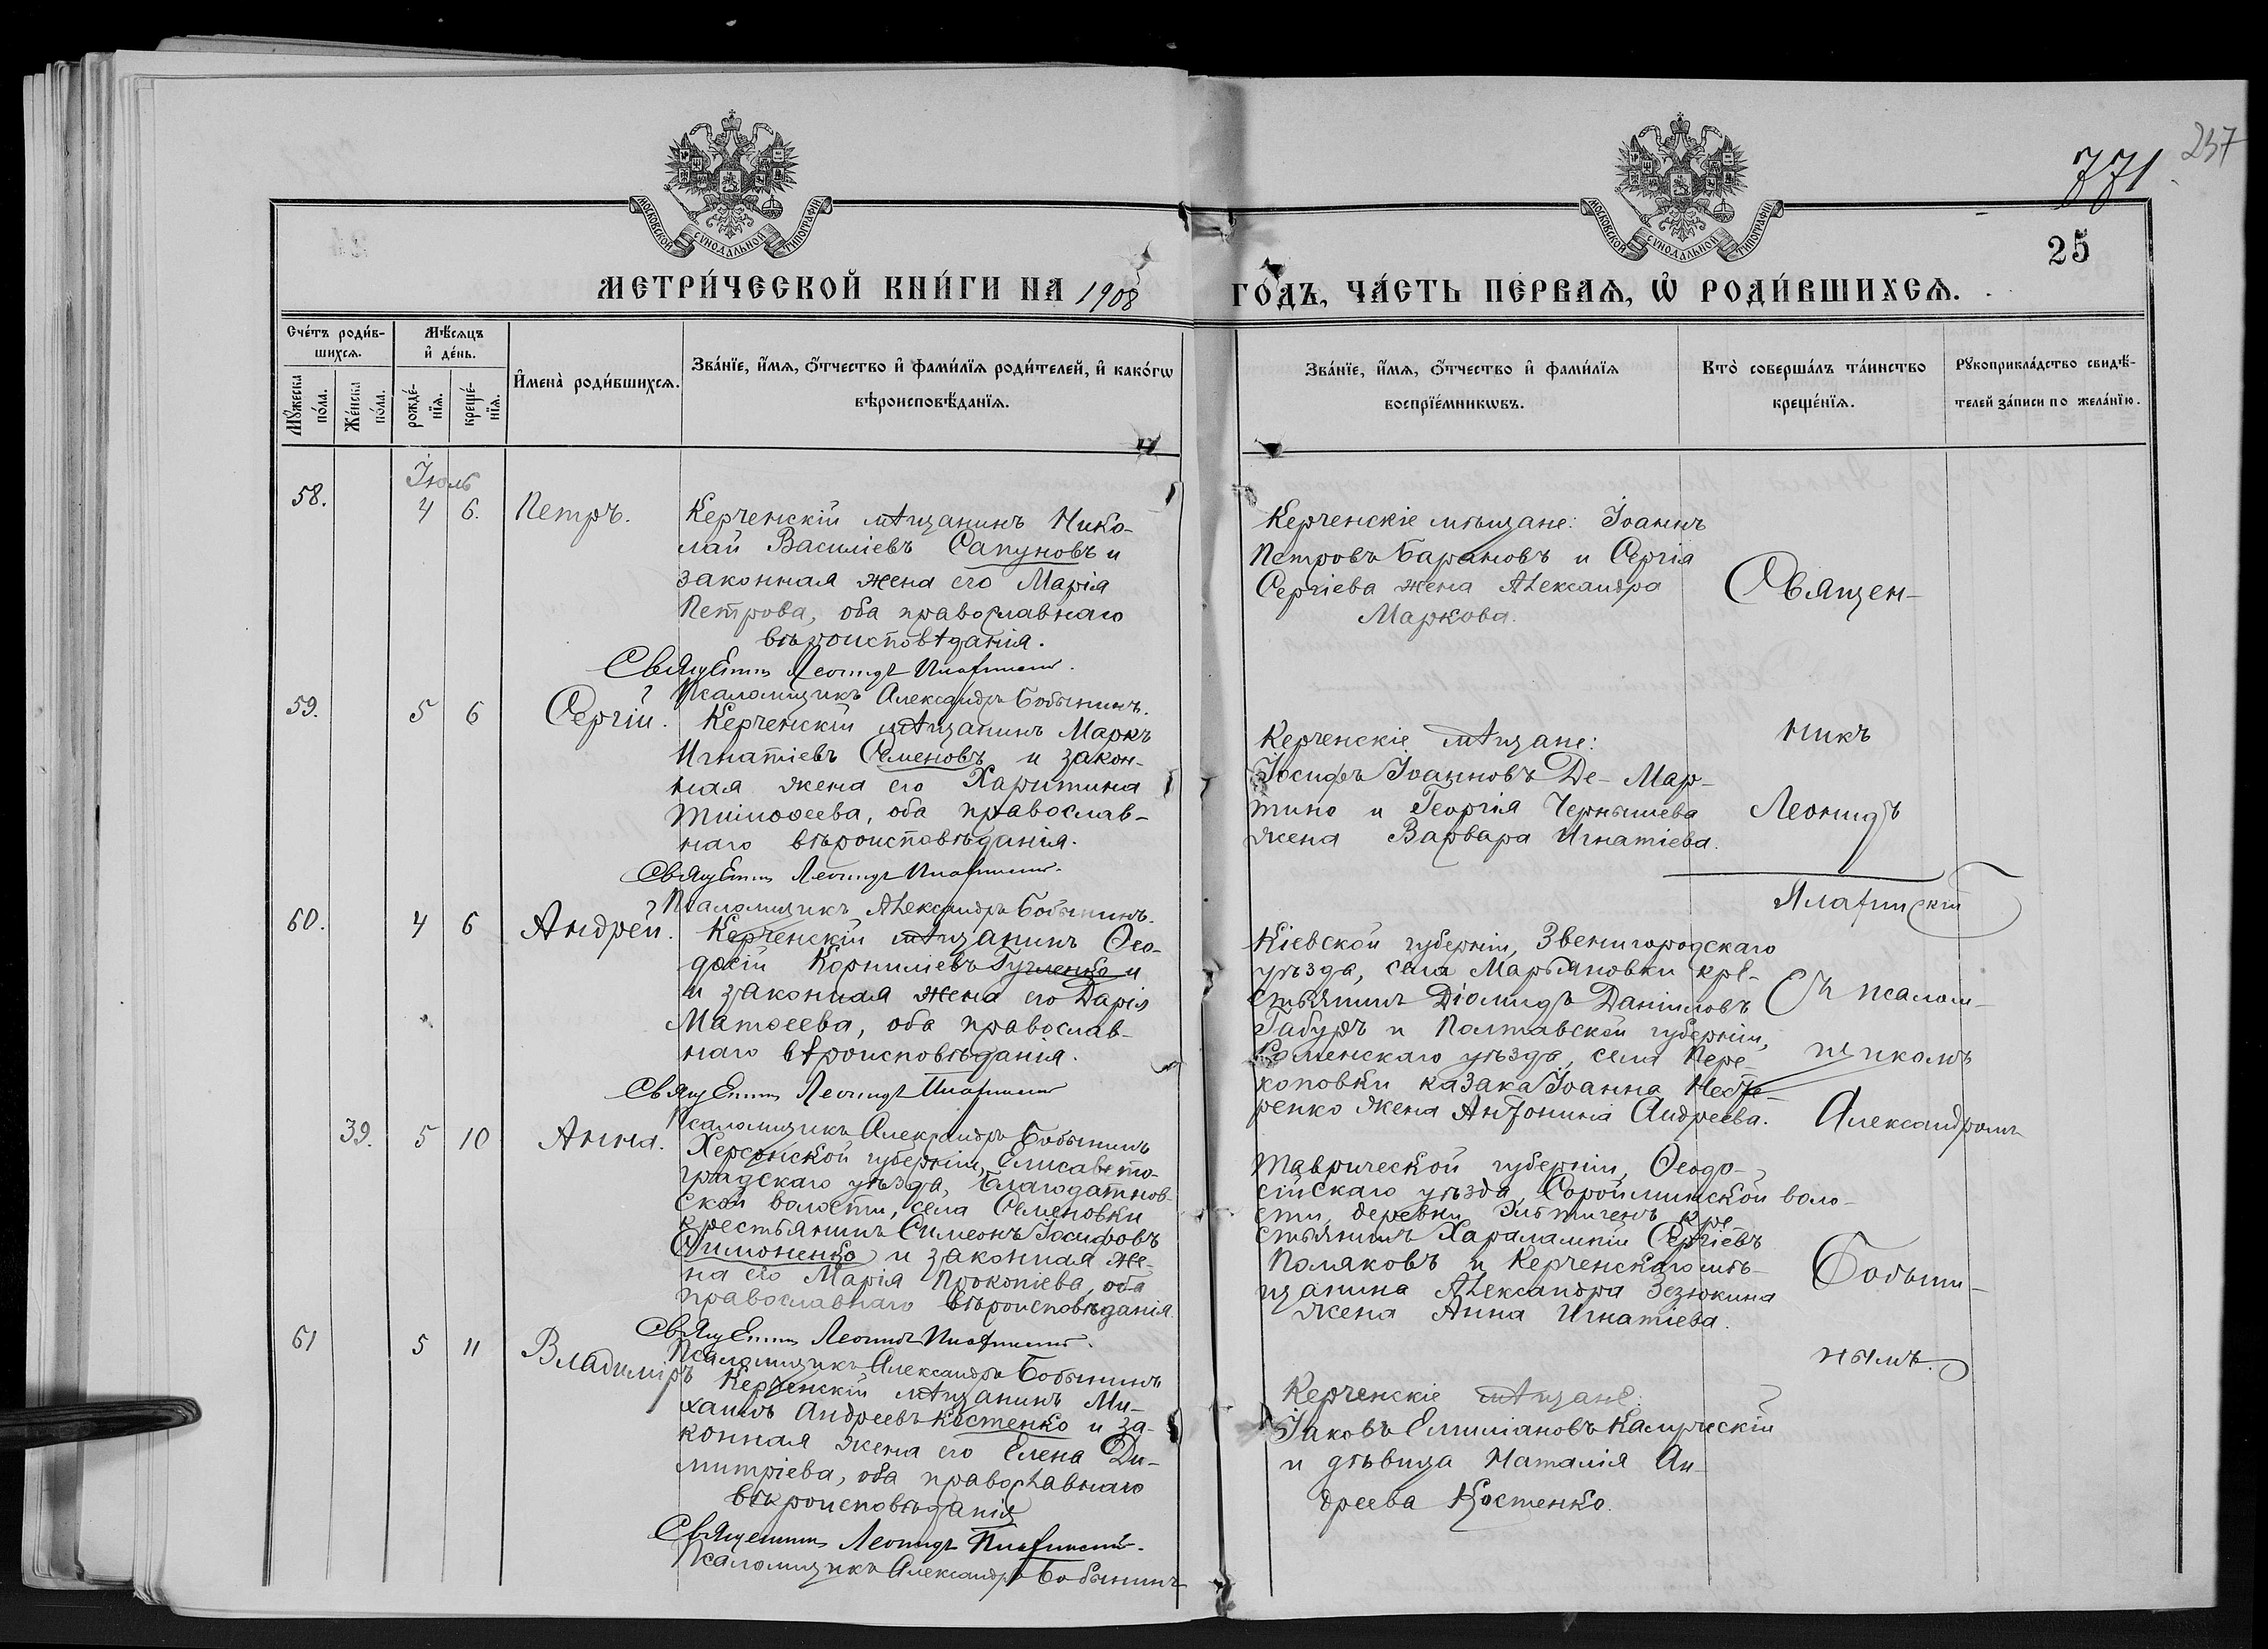 237
771
25
МОСКОВСКОЙ СѴНОДАЛЬНОЙ ТИПОГРАФІИ
МОСКОВСКОЙ СѴНОДАЛЬНОЙ ТИПОГРАФІИ
МЕТРИ́ЧЕСКОЙ КНИ́ГИ НА 1908
ГО́ДЪ, ЧА́СТЬ ПЕ́РВАѦ, Ѡ҆ РОДИ́ВШИХСѦ.
Сче́тъ роди́в-
шихсѧ.
Мѣ́сѧцъ
и҆ де́нь.
Мꙋ́жеска
по́ла.
Же́нска
по́ла.
рожде́-
нїѧ.
креще́-
нїѧ.
И҆мена̀ роди́вшихсѧ.
Зва́нїе, и҆́мѧ, ѻ҆́тчество и҆ фами́лїѧ роди́телей, и҆ како́гѡ
вѣроисповѣ́данїѧ.
Зва́нїе, и҆́мѧ, ѻ҆́тчество и҆ фами́лїѧ
воспрїе́мникѡвъ.
Кто̀ соверша́лъ та́инство
креще́нїѧ.
Рꙋкоприкла́дство свидѣ́-
телей за́писи по жела́нїю.
Іюль
58.
4 6.
Петръ.
Керченскій мѣщанинъ Нико-
лай Василіевъ Сапуновъ и
законная жена его Марія
Петрова, оба православнаго
вѣроисповѣданія.
Священникъ Леонидъ
Псаломщикъ Александръ Бобынинъ.
Керченскіе мѣщане: Іоаннъ
Петровъ Барановъ и Сергія
Сергіева жена Александра
Маркова.
Священ-
59.
5 6
Сергій.
Керченскій мѣщанинъ Маркъ
Игнатіевъ Семеновъ и закон-
ная жена его Харитина
Тимоѳеева, оба православ-
наго вѣроисповѣданія.
Священникъ Леонидъ
Псаломщикъ Александръ Бобынинъ.
Керченскіе мѣщане:
Іосифъ Іоанновъ Де-Мар-
тино и Георгія Чернышева
жена Варвара Игнатіева.
никъ
Леонидъ
60.
4 6
Андрей.
Керченскій мѣщанинъ Ѳео-
досій Корниліевъ и
и законная жена его Дарія
Матѳеева, оба православ-
наго вѣроисповѣданія.
Священникъ Леонидъ
Псаломщикъ Александръ Бобынинъ
Кіевской губерніи, Звенигородскаго
уѣзда, села Марьяновки кре-
стьянинъ Діомидъ Даніиловъ
Габуръ и Полтавской губерніи,
Роменскаго уѣзда, села Пере-
коповки казака Іоанна Несте-
ренко жена Антонина Андреева.
Съ псалом-
щикомъ
Александромъ
39.
5 10
Анна.
Херсонской губерніи, Елисавето-
градскаго уѣзда, Благодатнов-
ской волости, села Семеновки
крестьянинъ Симеонъ Іосифовъ
Тимоненко и законная же-
на его Марія Прокопіева, оба
православнаго вѣроисповѣданія.
Священникъ Леонидъ
Псаломщикъ Александръ Бобынинъ
Таврической губерніи, Ѳеодо-
сійскаго уѣзда, Сарайминской воло-
сти, деревни Эльтигенъ кре-
стьянинъ Харалампій Сергіевъ
Поляковъ и Керченскаго мѣ-
щанина Александра Зезюкина
жена Анна Игнатіева.
Бобыни-
нымъ.
61
5 11
Владиміръ
Керченскій мѣщанинъ Ми-
хаилъ Андреевъ Костенко и за-
конная жена его Елена Ди-
митріева, оба православнаго
вѣроисповѣданія
Священникъ Леонидъ
Псаломщикъ Александръ Бобынинъ
Керченскіе мѣщане:
Іаковъ Емиліановъ
и дѣвица Наталія Ан-
дреева Костенко.